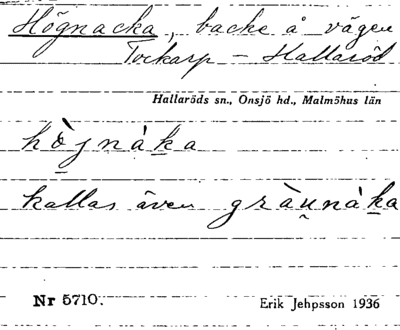 Högnacka, backe å vägen
Torkarp – Hallaröd
Hallaröds sn., Onsjö hd., Malmöhus län
hòjnàka
kallas även gràunàka
Nr 5710.
Erik Jehpsson 1936